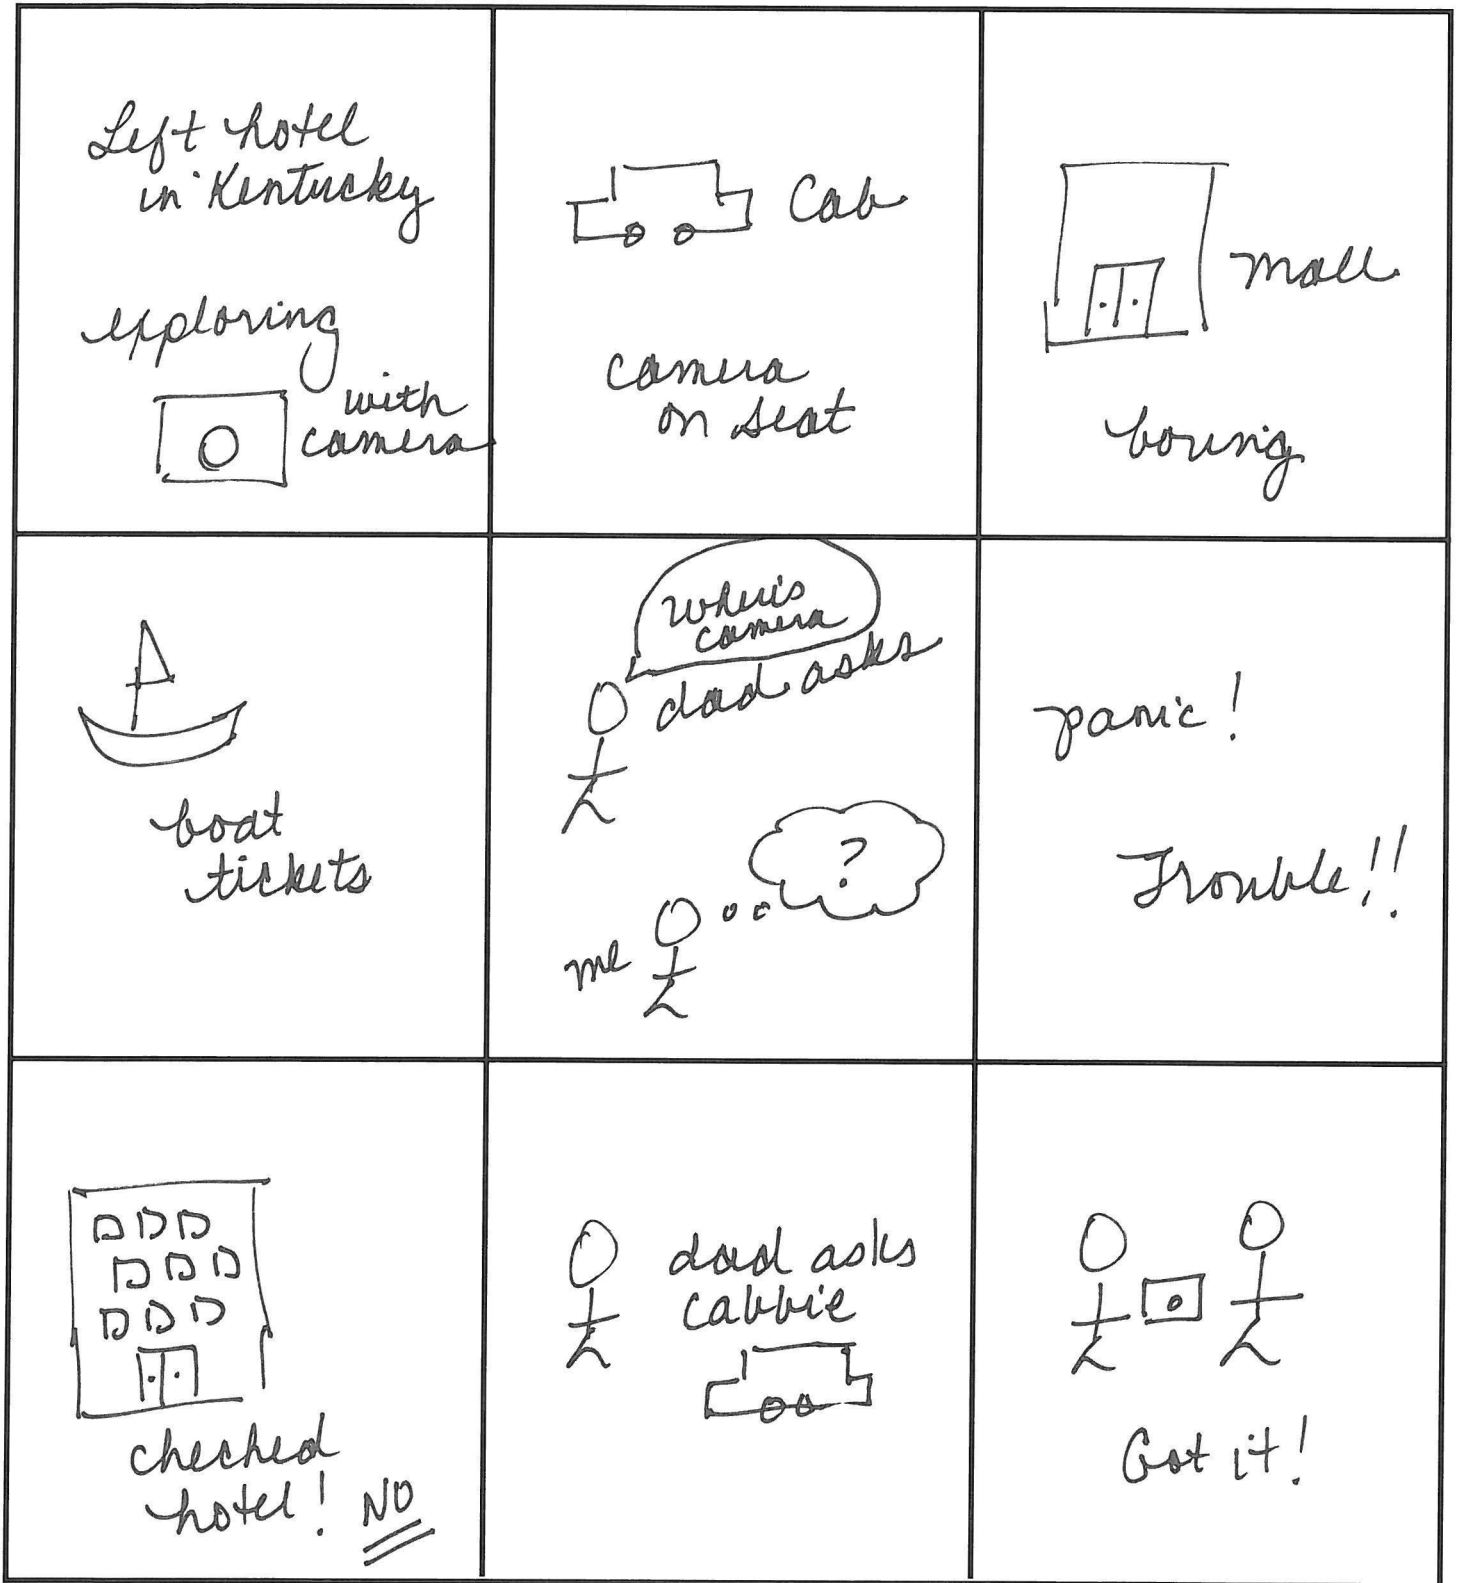 Left hotel
in Kentucky
exploring
with
camera
Cab
camera
on seat
mall
boring
boat
tickets
Where's
camera
dad asks
?
me
panic!
Trouble!!
checked
hotel! NO
dad asks
cabbie
Got it!